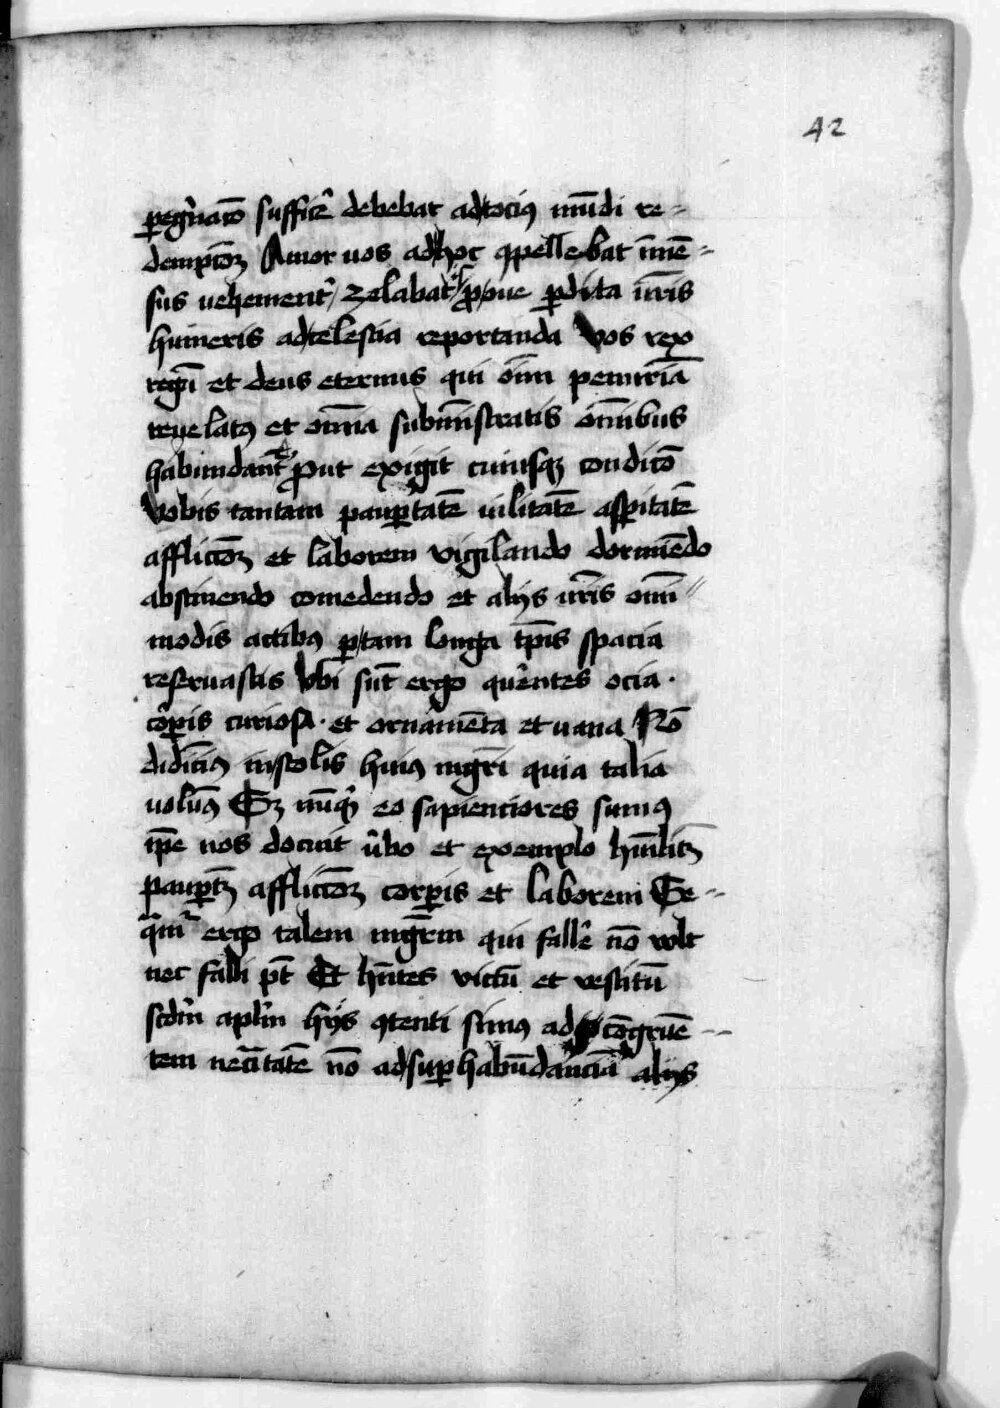 42
ꝑegͥnaco᷃ suffic̾e debebat ad tociꝰ mu᷃di re=
dempco᷃ꝫ Amor uos ad hoc ꝯpellebat im̄e᷃=
sus vehement̾ zelabat̾ ꝓ oue ꝑdita ur̄is
humeris ad celestia reportanda Vos rex
regu᷃ et deus eternus qui oīm penuria᷃
reuelatꝭ et om̄ia submi᷃stratis om̄ibus
habundant̾ ꝓut exigit cuiusqꝫ condico᷃
Vobis tantam pauꝑtate᷃ uilitate᷃ asꝑitate᷃
afflicco᷃ꝫ et laborem vigilando dormie᷃do
abstinendo comedendo et alijs ur̄is omi᷃=
modis actibꝰ ꝑ tam longa tp̄is spacia
reseruastis Vbi su᷃t ergo que᷃rentes ocia ·
cor̄ꝑis curiosa · et orname᷃ta et uana No᷃
didiciꝰ in scolis huiꝰ mgr̄i quia talia
uoluꝰ Sꝫ nu᷃qͥ eo sapienciores sumꝰ
ip̄e nos docuit v̾bo et exemplo humilitꝫ
pauꝑtꝫ afflicco᷃ꝫ corꝑis et laborem Se=
qͣmͬ ergo talem mgr̄m qui falle᷃ no᷃ wlt
nec falli pt̄ Et hn̄tes victu᷃ et vestitu᷃
scdm̄ aplm̄ hijs ꝯtenti simꝰ ad co᷃grue᷃=
tem nec̄itate᷃ no᷃ ad suꝑhabu᷃dancia᷃ alijs